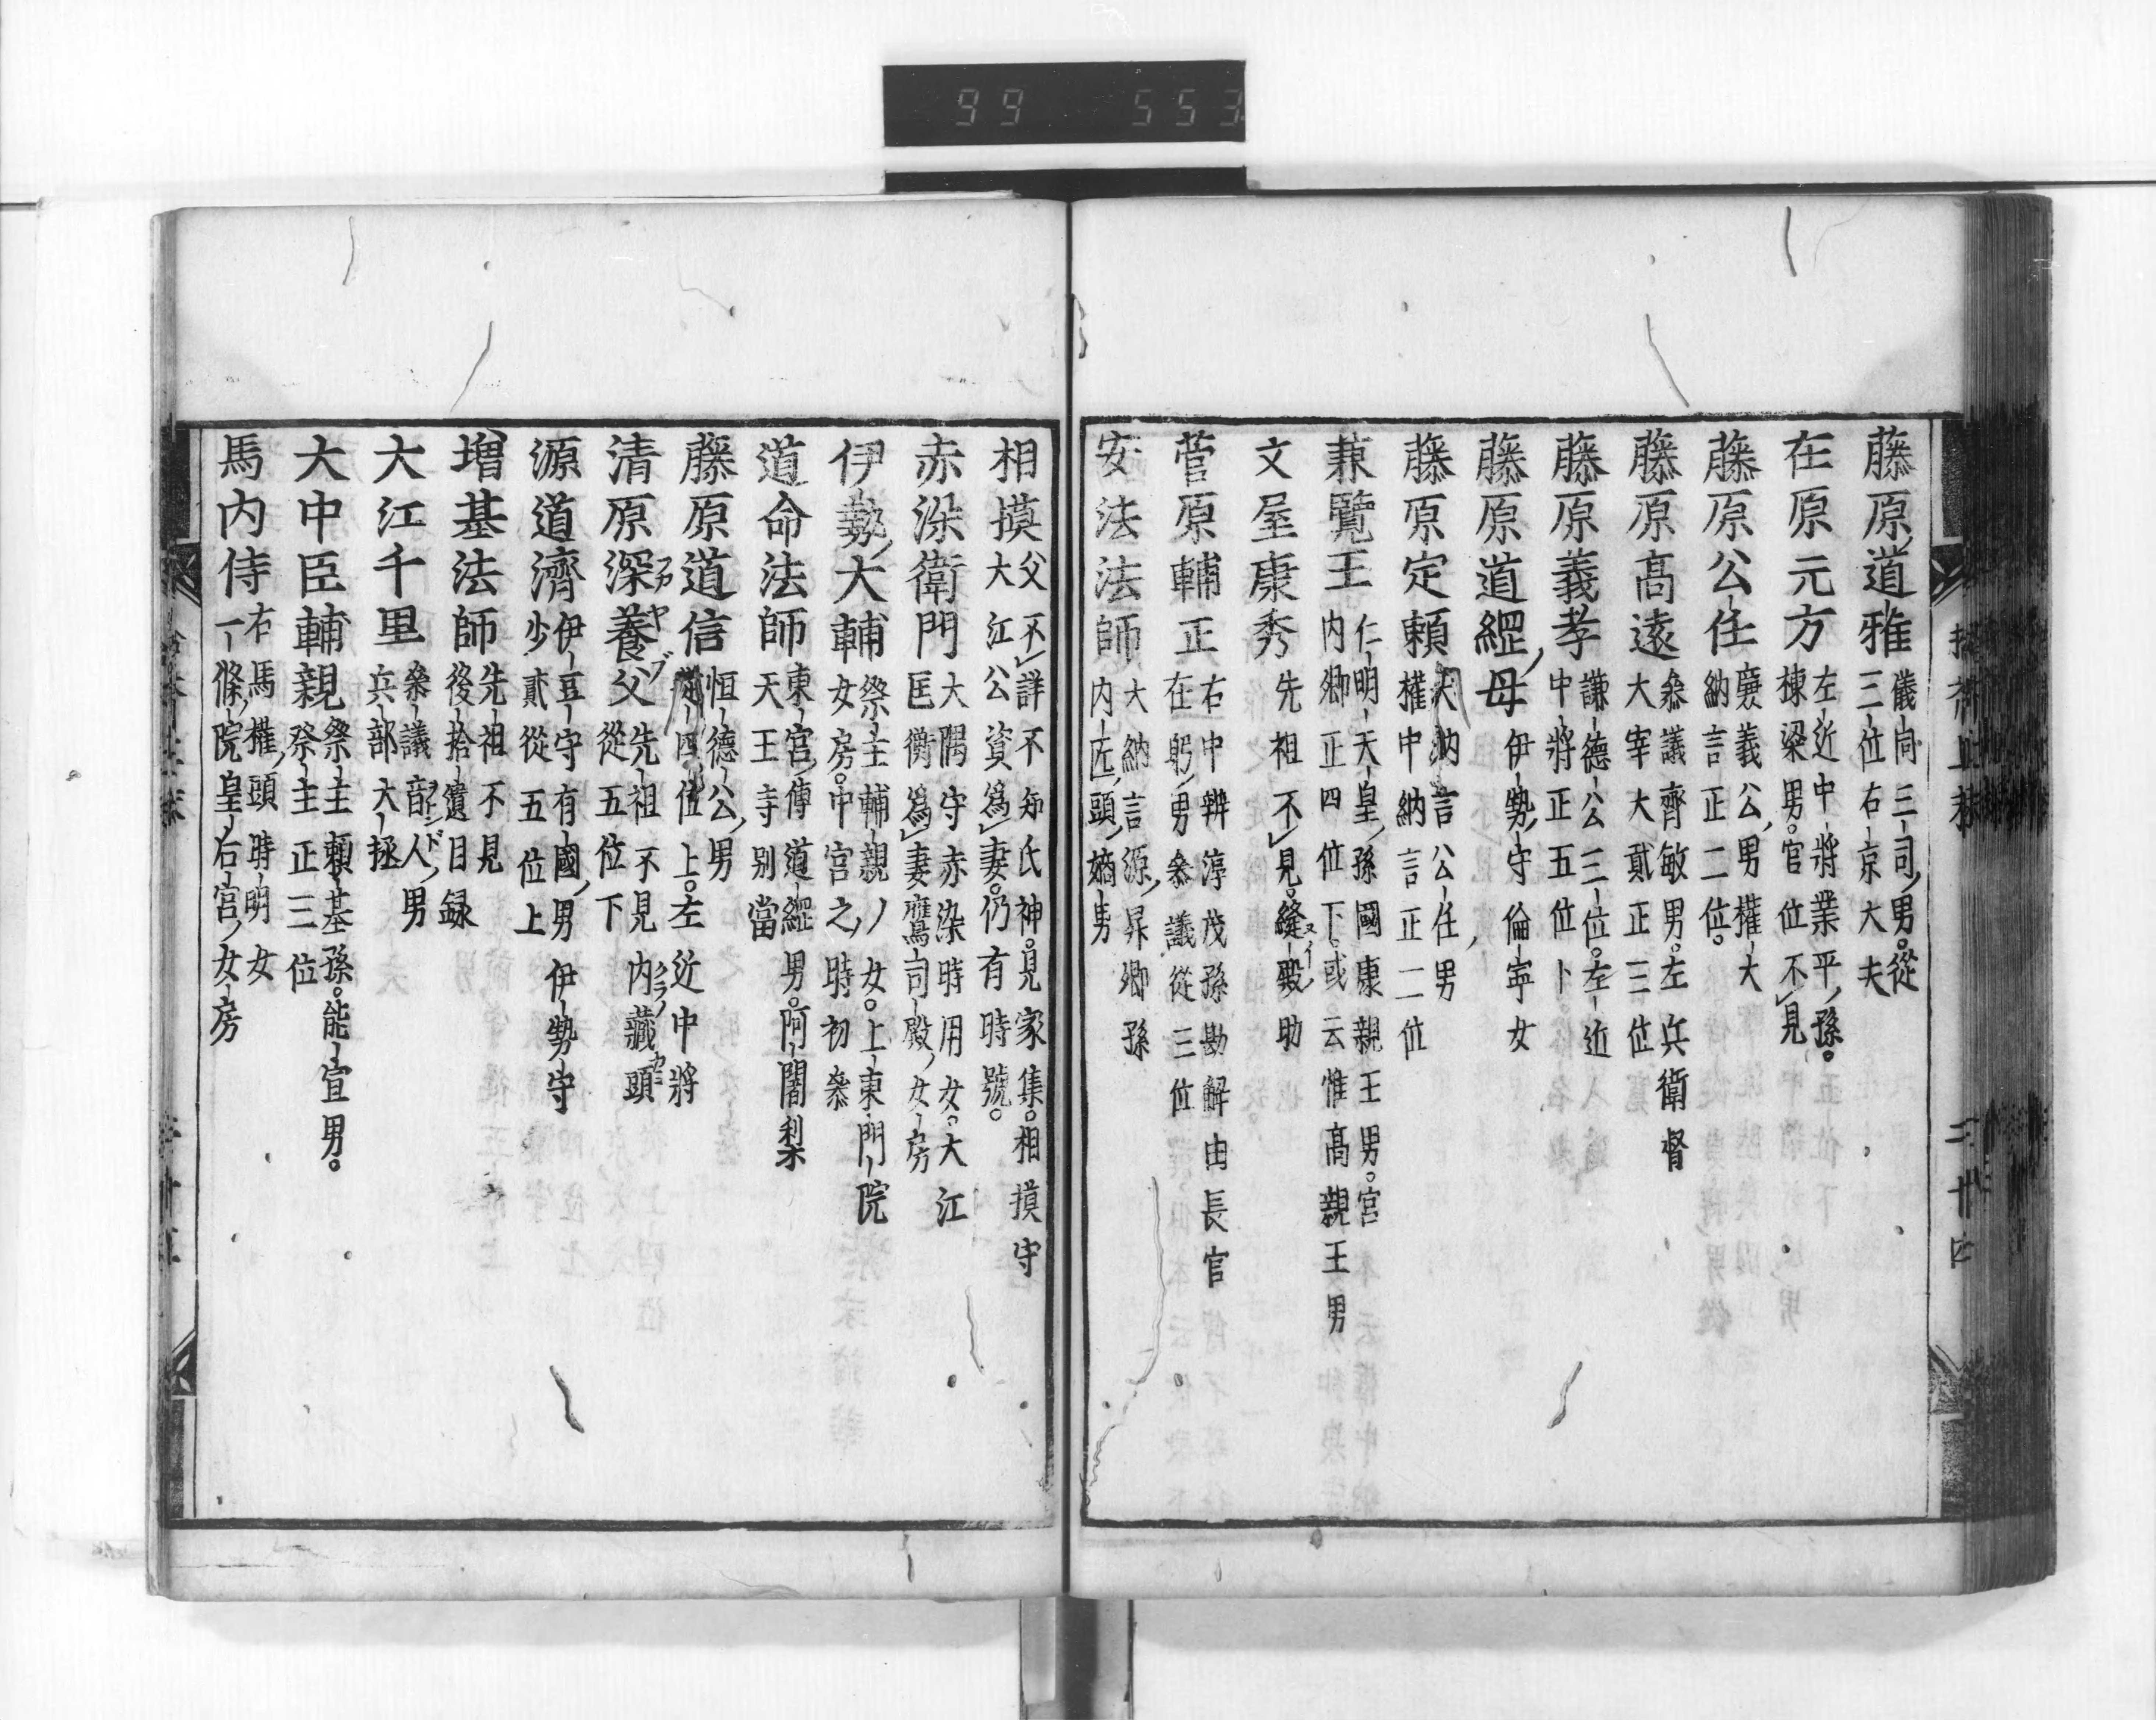 99 553
藤原道雅 儀同三司男。從
三位右京大夫
在原元方 左近中將業平孫。
棟梁男。官位不見
藤原公任 廉義公男權大
納言正二位。
藤原高遠 叅議齊敏男。左兵衛督
大宰大貳正三位
藤原義孝 謙德公三位。左近
中將正五位下
藤原道經母 伊勢守倫寧女
藤原定頼 大納言公任男
權中納言正二位
兼覽王 仁明天皇孫國康親王男。宮
内卿正四位下。或云惟高親王男
文屋康秀 先祖不見。縫殿助
菅原輔正 右中辨淳茂孫勘解由長官
在躬男叅議從三位
安法法師 大納言源昇卿孫
内匠頭嫡男
相摸 父不詳不知氏神。見家集。相摸守
大江公資爲妻。仍有時號。
赤染衛門 大隅守赤染時用女。大江
匡衡爲妻鷹司殿女房
伊勢大輔 祭主輔親ノ女。上東門院
女房。中宮之時初叅
道命法師 東宮傳道經男。阿闍梨
天王寺別當
藤原道信 恒德公男
從四位上。左近中將
清原深養父 先祖不見内藏頭
從五位下
フカヤブ
クラノカミ
源道濟 伊豆守有國男伊勢守
少貳從五位上
増基法師 先祖不見
後拾遺目録
大江千里 叅議音人男
兵部大丞
大中臣輔親 祭主頼基孫。能宣男。
祭主正三位
馬内侍 右馬權頭時明女
一條院皇后宮女房